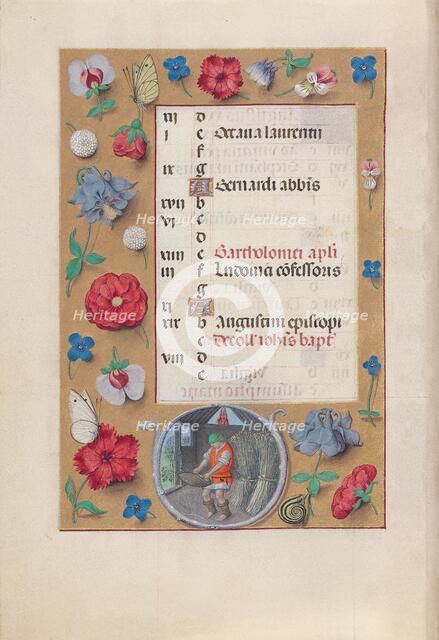 xij d
i e Octaua laurentii
f
ix g
A Bernardi abbis
xvii b
vi c
d
xiiii e Bartholomei apli
iii f Ludouici cõfessoris
g
xi A
xix b Augustini episcopi
c Decoll iohis bapt
viii d
e
Heritage
Heritage
Heritage
Heritage
Heritage
Heritage